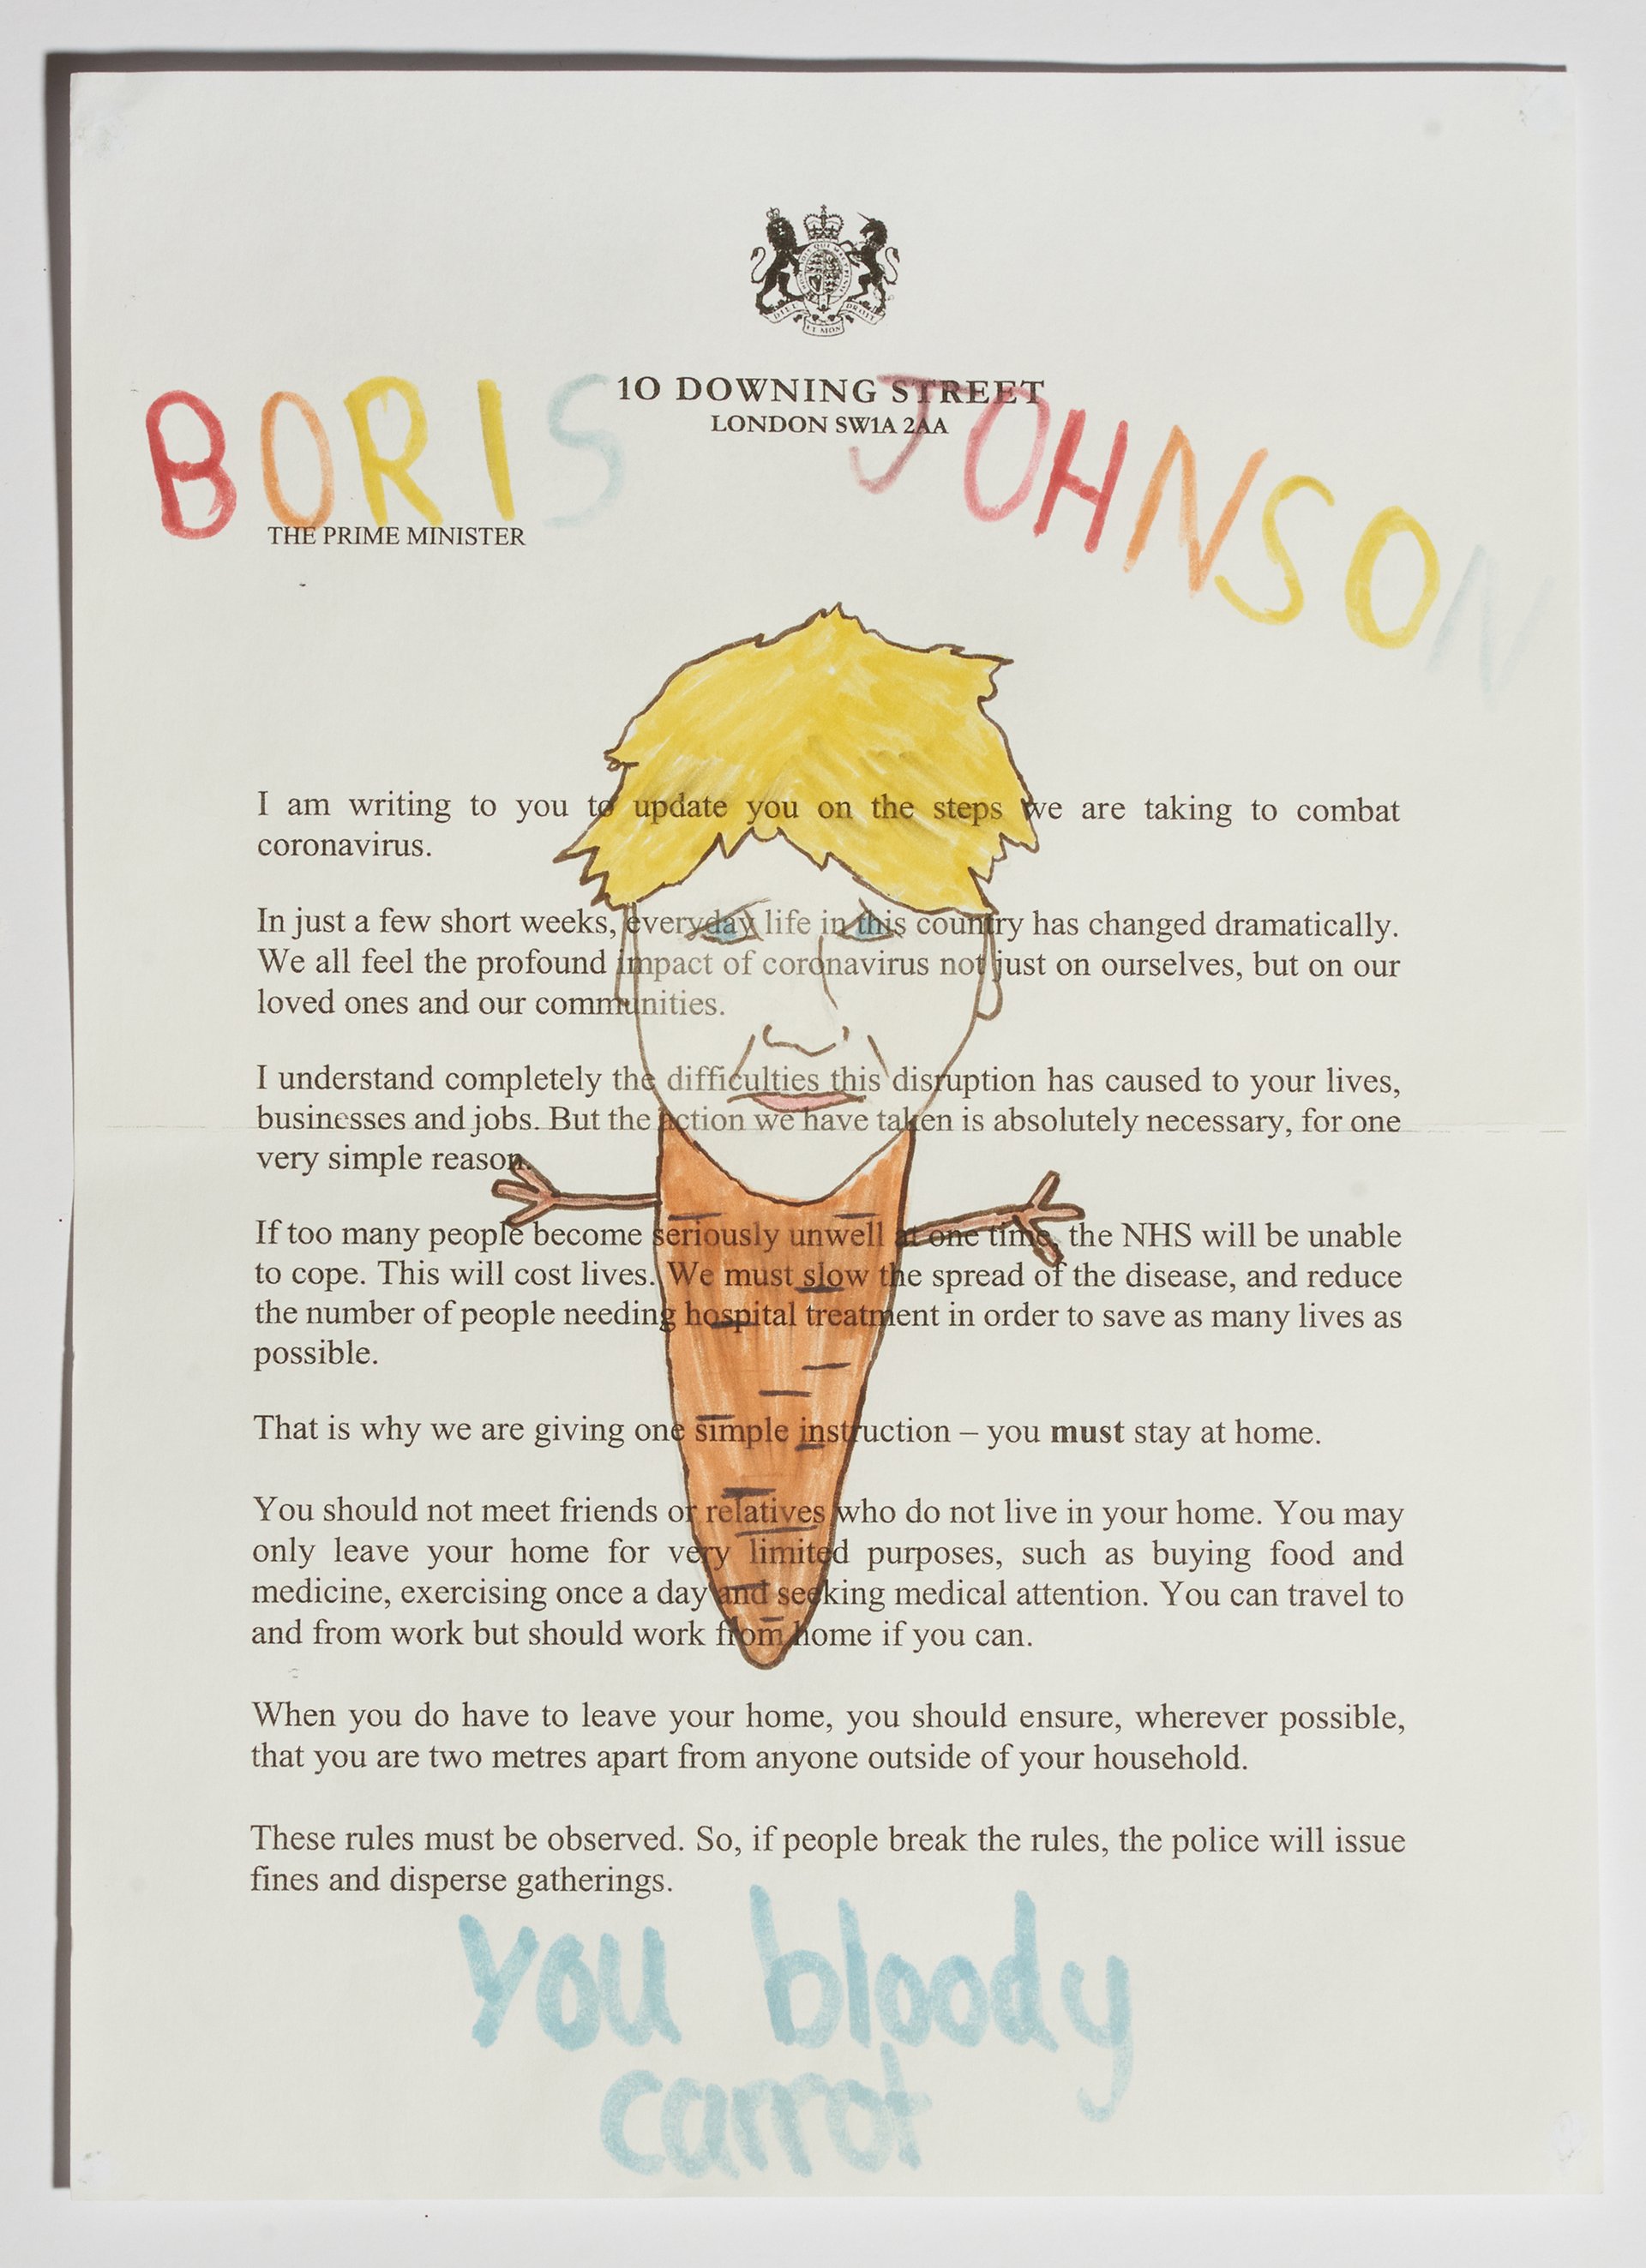 10 DOWNING STREET
LONDON SW1A 2AA
BORIS JOHNSON
THE PRIME MINISTER
I am writing to you to update you on the steps we are taking to combat
coronavirus.
In just a few short weeks, everyday life in this country has changed dramatically.
We all feel the profound impact of coronavirus not just on ourselves, but on our
loved ones and our communities.
I understand completely the difficulties this disruption has caused to your lives,
businesses and jobs. But the action we have taken is absolutely necessary, for one
very simple reason.
If too many people become seriously unwell at one time, the NHS will be unable
to cope. This will cost lives. We must slow the spread of the disease, and reduce
the number of people needing hospital treatment in order to save as many lives as
possible.
That is why we are giving one simple instruction – you must stay at home.
You should not meet friends or relatives who do not live in your home. You may
only leave your home for very limited purposes, such as buying food and
medicine, exercising once a day and seeking medical attention. You can travel to
and from work but should work from home if you can.
When you do have to leave your home, you should ensure, wherever possible,
that you are two metres apart from anyone outside of your household.
These rules must be observed. So, if people break the rules, the police will issue
fines and disperse gatherings.
you bloody
carrot